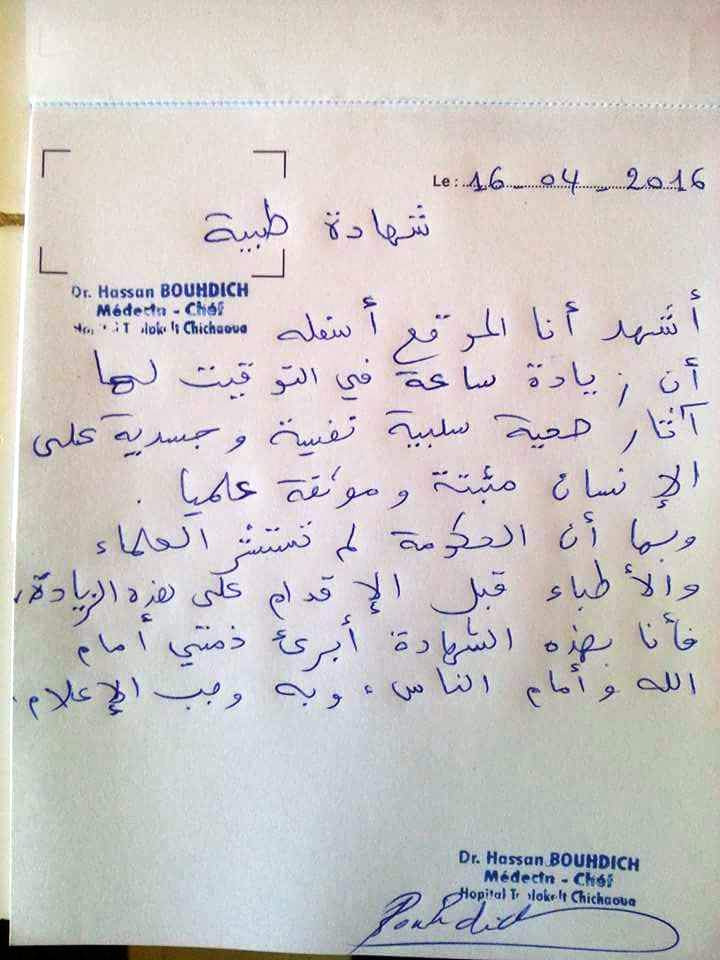 Le : 16 04 2016
شهادة طبية
Dr. Hassan BOUHDICH
Médecin - Chéf
Chichaoua
أشهد أنا الموقع أسفله
أن زيادة ساعة في التوقيت لها
آثار صحية سلبية نفسية و جسدية على
الإنسان مثبتة و موثقة علميا .
وبما أن الحكومة لم تستشر العلماء
والأطباء قبل الإقدام على هذه الزيادة،
فأنا بهذه الشهادة أبرئ ذمتي أمام
الله و أمام الناس، وبه وجب الإعلام.
Dr. Hassan BOUHDICH
Médecin - Chéf
Hopital Chichaoua
Bouhdich